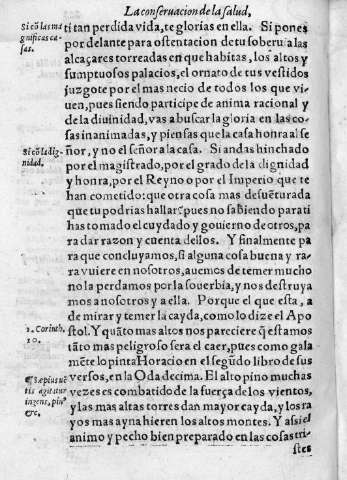 La conseruacion de la salud,
Si cõ las ma
gnificas ca-
sas.
ti tan perdida vida, te glorias en ella. Si pones
por delante para ostentacion de tu soberuia las
alcaçares torreadas en que habitas, los altos y
sumptuosos palacios, el ornato de tus vestidos
juzgote por el mas necio de todos los que vi-
uen, pues siendo participe de anima racional y
de la diuinidad, vas a buscar la gloria en las co-
sas inanimadas, y piensas que la casa honra al se
Si cõ la dig-
nidad.
ñor, y no el señor a la casa. Si andas hinchado
por el magistrado, por el grado de la dignidad
y honra, por el Reyno o por el Imperio que te
han cometido: que otra cosa mas desuẽturada
que tu podrias hallar? pues no sabiendo para ti
has tomado el cuydado y gouierno de otros, pa
ra dar razon y cuenta dellos. Y finalmente pa
ra que concluyamos, si alguna cosa buena y ra-
ra vuiere en nosotros, auemos de temer mucho
no la perdamos por la souerbia, y nos destruya
mos a nosotros y a ella. Porque el que esta, a
de mirar y temer la cayda, como lo dize el Apo
1. Corinth.
10.
stol. Y quãto mas altos nos pareciere q̃ estamos
tãto mas peligroso sera el caer, pues como gala
mẽte lo pinta Horacio en el segũdo libro de sus
Sæpius uẽ
tis agitatur
ingens, pinꝰ
&c.
versos, en la Oda decima. El alto pino muchas
vezes es combatido de la fuerça de los vientos,
y las mas altas torres dan mayor cayda, y los ra
yos mas ayna hieren los altos montes. Y assi el
animo y pecho bien preparado en las cosas tri-
stes